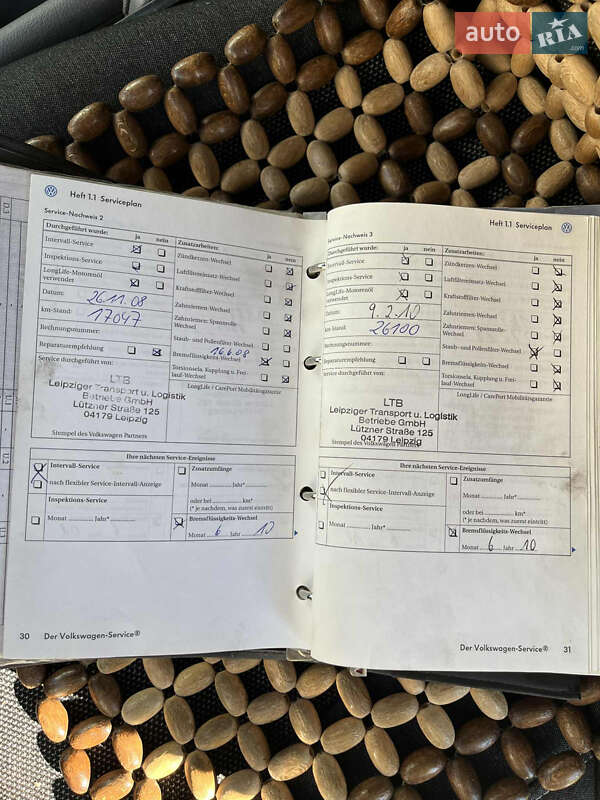 auto RIA .com
Heft 1.1 Serviceplan
Service-Nachweis 2
Durchgeführt wurde: ja nein Zusatzarbeiten: ja nein
Intervall-Service
Inspektions-Service
LongLife-Motorenöl
verwendet
Datum: 26.11.08
km-Stand: 17047
Rechnungsnummer:
Reparaturempfehlung
Service durchgeführt von:
Zündkerzen-Wechsel
Luftfiltereinsatz-Wechsel
Kraftstofffilter-Wechsel
Zahnriemen-Wechsel
Zahnriemen: Spannrolle-
Wechsel
Staub- und Pollenfilter-Wechsel
16.6.08
Bremsflüssigkeits-Wechsel
Torsionsela, Kupplung u. Frei-
lauf-Wechsel
LongLife / CarePort Mobilitätsgarantie
LTB
Leipziger Transport u. Logistik
Betriebe GmbH
Lützner Straße 125
04179 Leipzig
Stempel des Volkswagen Partners
Ihre nächsten Service-Ereignisse
Intervall-Service
nach flexibler Service-Intervall-Anzeige
Inspektions-Service
Monat Jahr*
Zusatzumfänge
Monat Jahr*
oder bei km*
(* je nachdem, was zuerst eintritt)
Bremsflüssigkeits-Wechsel
Monat 6 Jahr 10
30 Der Volkswagen-Service®
Heft 1.1 Serviceplan
Service-Nachweis 3
Durchgeführt wurde: ja nein Zusatzarbeiten: ja nein
Intervall-Service
Inspektions-Service
LongLife-Motorenöl
verwendet
Datum: 9.2.10
km-Stand: 26100
Rechnungsnummer:
Reparaturempfehlung
Service durchgeführt von:
Zündkerzen-Wechsel
Luftfiltereinsatz-Wechsel
Kraftstofffilter-Wechsel
Zahnriemen-Wechsel
Zahnriemen: Spannrolle-
Wechsel
Staub- und Pollenfilter-Wechsel
Bremsflüssigkeits-Wechsel
Torsionsela, Kupplung u. Frei-
lauf-Wechsel
LongLife / CarePort Mobilitätsgarantie
LTB
Leipziger Transport u. Logistik
Betriebe GmbH
Lützner Straße 125
04179 Leipzig
Stempel des Volkswagen Partners
Ihre nächsten Service-Ereignisse
Intervall-Service
nach flexibler Service-Intervall-Anzeige
Inspektions-Service
Monat Jahr*
Zusatzumfänge
Monat Jahr*
oder bei km*
(* je nachdem, was zuerst eintritt)
Bremsflüssigkeits-Wechsel
Monat 6 Jahr 10
Der Volkswagen-Service® 31